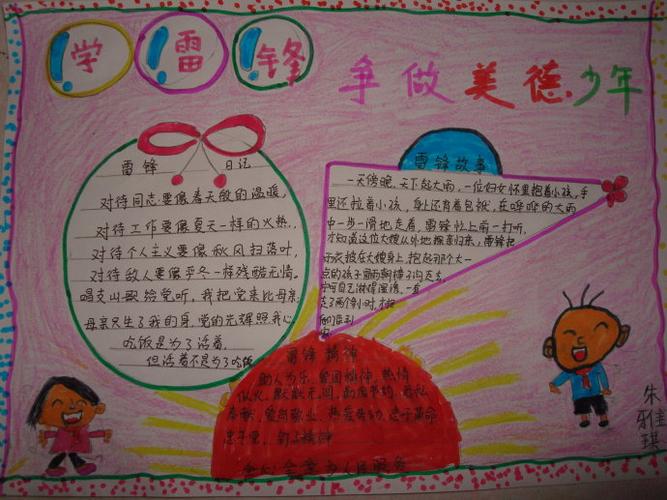 学雷锋
争做美德少年
雷锋 日记
对待同志要像春天般的温暖,
对待工作要像夏天一样的火热,
对待个人主义要像秋风扫落叶,
对待敌人要像严冬一样残酷无情。
唱支山歌给党听,我把党来比母亲,
母亲只生了我的身,党的光辉照我心
吃饭是为了活着,
但活着不是为了吃饭
雷锋故事
一天傍晚,天下起大雨,一位妇女怀里抱着小孩,手
里还拉着小孩,身上还背着包袱,在哗哗的大雨
中一步一滑地走着,雷锋忙上前一打听,
才知道这位大嫂从外地探亲归来,雷锋把
雨衣披在大嫂身上,抱起那个大一
点的孩子冒雨朝樟子沟走去,
宁可自己淋得湿透,一直
走了两个小时,才把
雷锋精神
助人为乐,爱国精神,热情
似火,默默无闻,勤俭节约,无私
奉献,爱岗敬业,热爱劳动,忠于革命
忠于党,钉子精神
全心全意为人民服务
朱雅琪